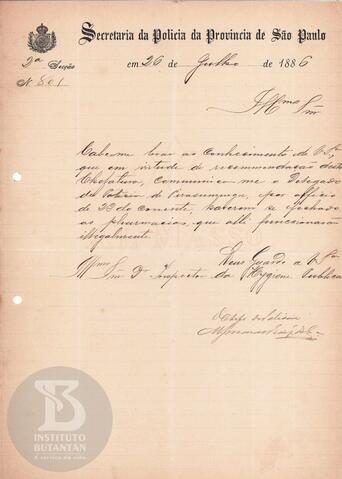 Secretaria da Policia da Provincia de São Paulo
2ª Secção
em 26 de Julho de 1886
Nº 801
Illmo Snr
Cabe-me levar ao conhecimento de V.Sª
que em virtude de recommendação desta
Chefatura, communicou-me o Delegado
de Policia de Pirassununga, por officio
de 23 do corrente, haverem se fechado
as pharmacias, que alli funccionavão
illegalmente.
Deus Guarde a V.Sª
Illmo Snr Dr Inspector da Hygiene Publica
O Chefe de Policia
INSTITUTO
BUTANTAN
A serviço da vida